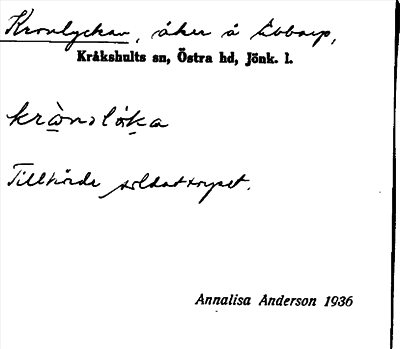 Kronlyckan, åker å Ebbarp,
Kråkshults sn, Östra hd, Jönk. l.
krò̱nlø̀ḵa
Tillhörde soldattorpet.
Annalisa Anderson 1936